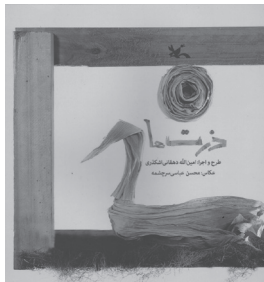 ذرت‌ها
طرح و اجرا: امین‌الله دهقانی اشکذری
عکاس: محسن عباسی سرچشمه